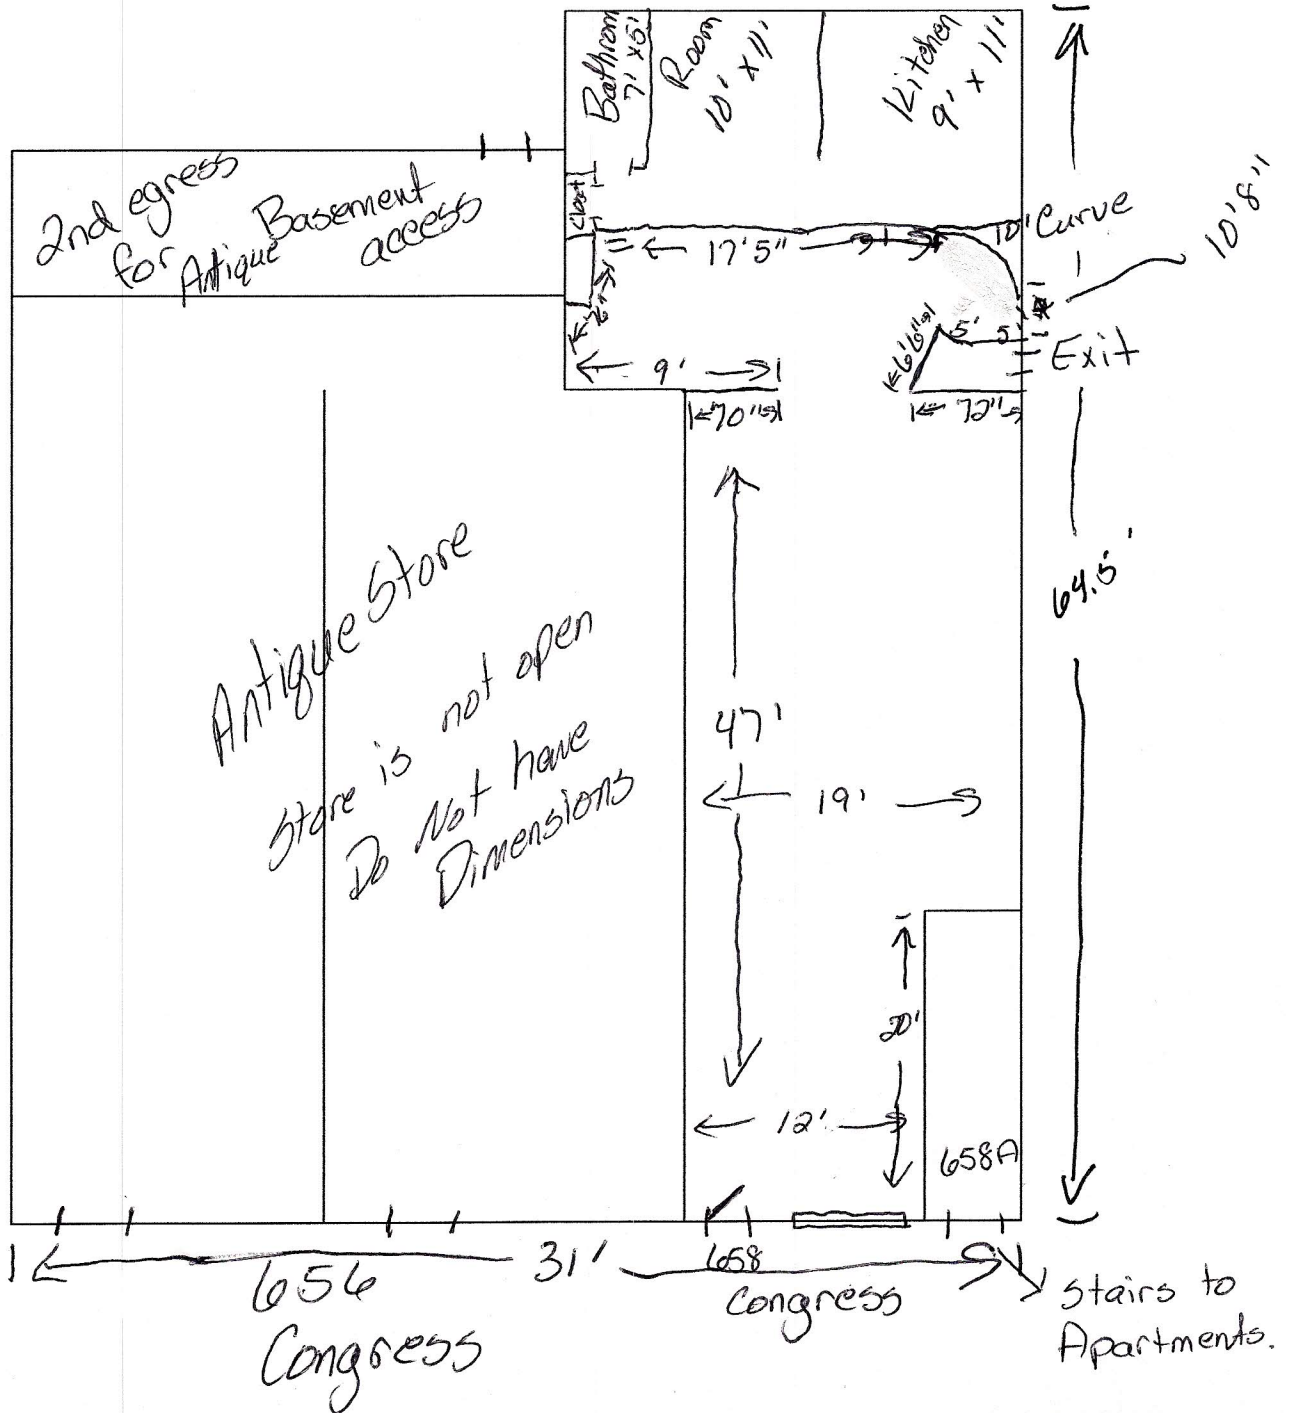 Bathrom
7' x6'
Room
10' x 11'
Kitchen
9' x 11'
2nd egress
for Antique
Basement
access
Closet
17'5"
10' Curve
10'8"
9'
5' 5'
Exit
70"
72"
64.5'
Antique Store
Store is not open
Do Not have
Dimensions
47'
19'
20'
12'
658A
31'
656
Congress
658
Congress
Stairs to
Apartments.